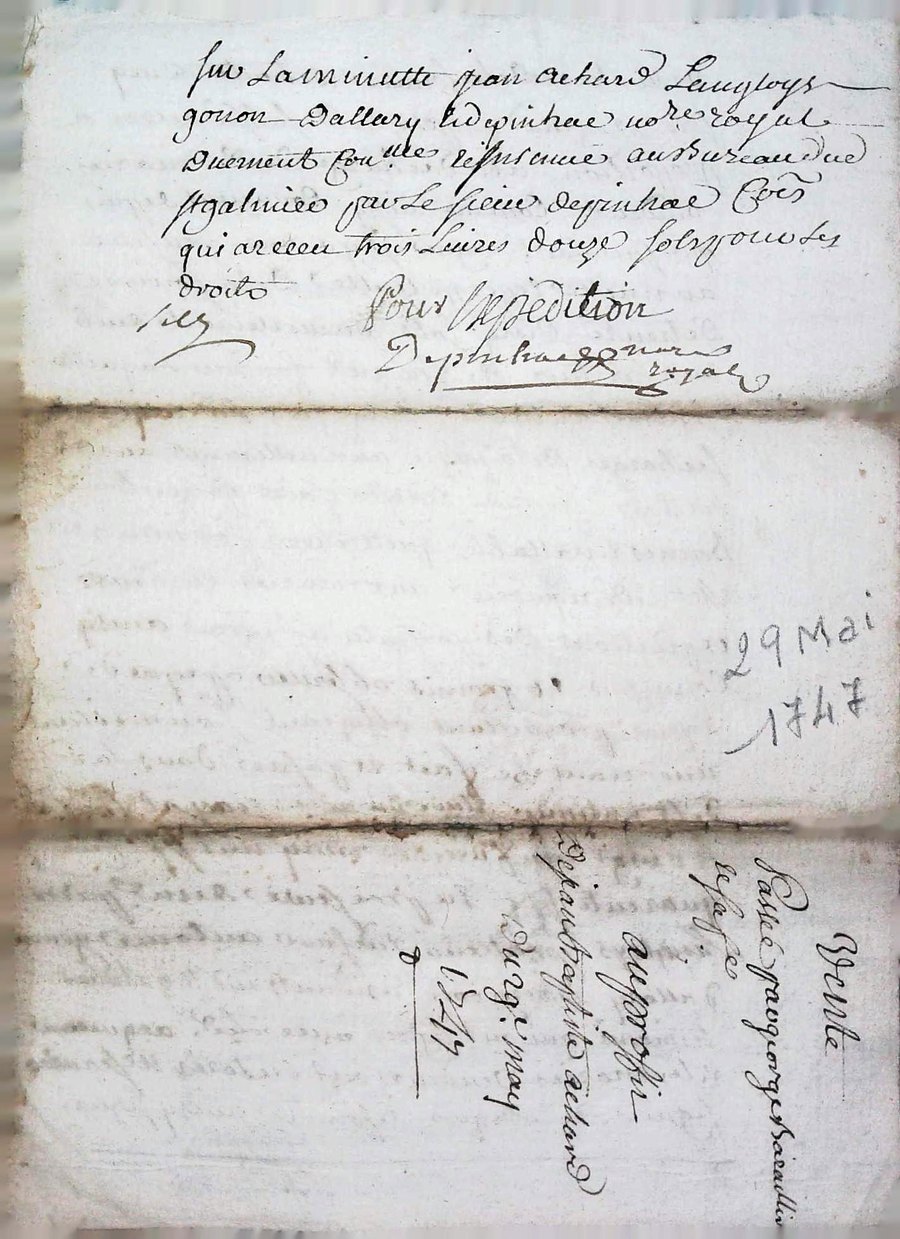 sur Laminutte jean achard Langloys
gonon Dallary & depinhac no.re royal
Duement Con.lle et insinué au Bureau de
st galmier par Le sieur depinhac Cõis
qui a receu trois Livres douze sols pour Les
droits
Pour Expedition
Depinhac nore
royal
29 Mai
1747
Vente
Passée par george Barailler
au proffit
De jean Baptiste achard
Du 29.e may
1747